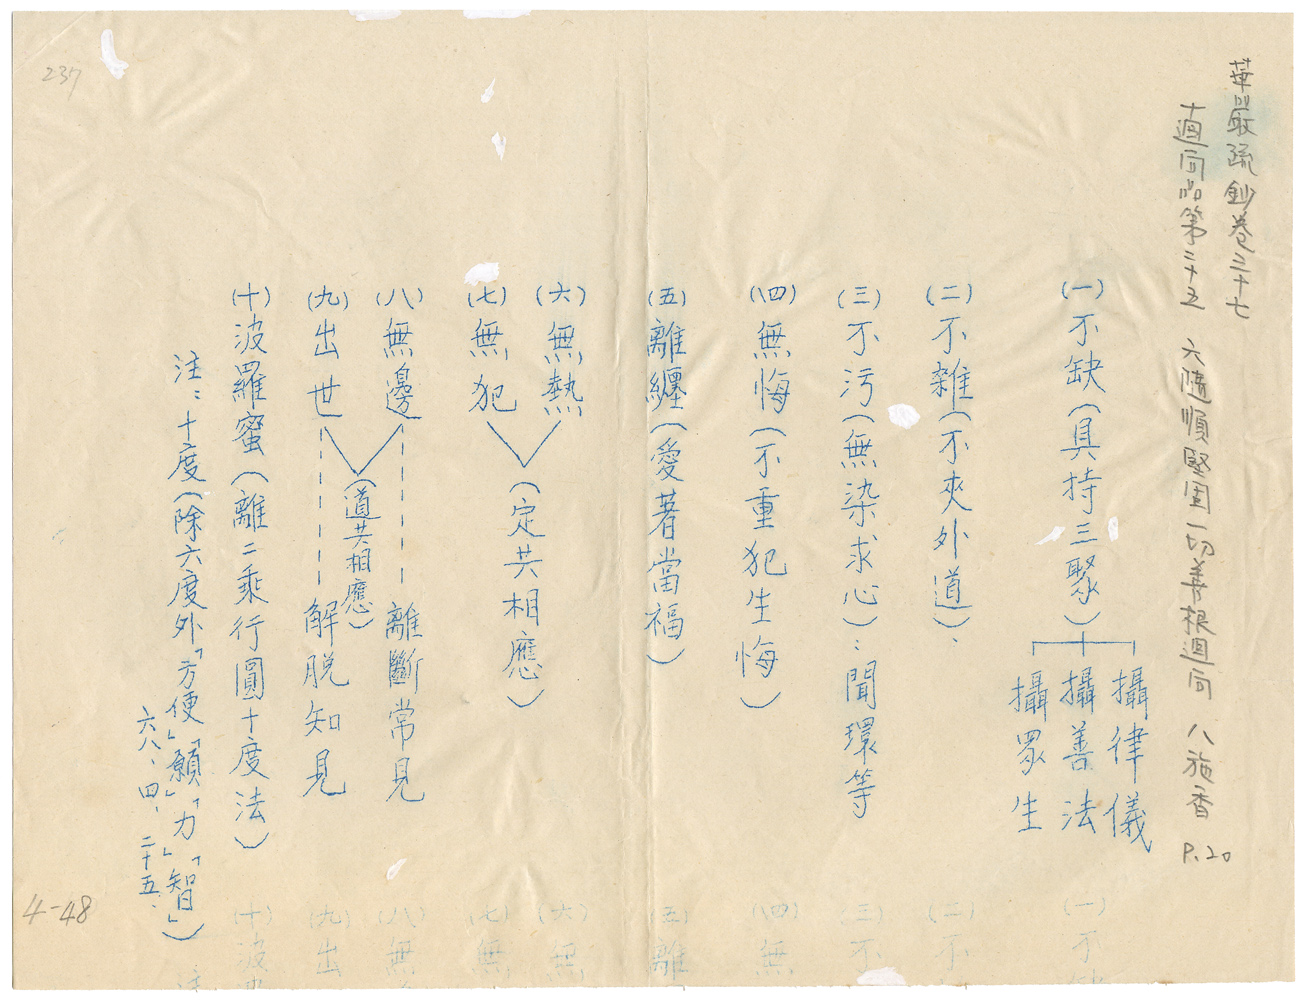 華嚴疏鈔卷三十七
十迴向品第二十五 六隨順堅固一切善根迴向 八施香 P.20
(一)不缺(具持三聚)
攝律儀
攝善法
攝眾生
(二)不雜(不夾外道):
(三)不污(無染求心):聞環等
(四)無悔(不重犯生悔)
(五)離纏(愛著當福)
(六)無熱
(七)無犯
(定共相應)
(八)無邊 離斷常見
(九)出世 解脱知見
(道共相應)
(十)波羅蜜(離二乘行圓十度法)
注:十度(除六度外「方便」「願」「力」「智」)
六八、四、二十五.
237
4-48
(一)不缺
(二)不
(三)不
(四)無
(五)離
(六)無
(七)無
(八)無
(九)出
(十)波